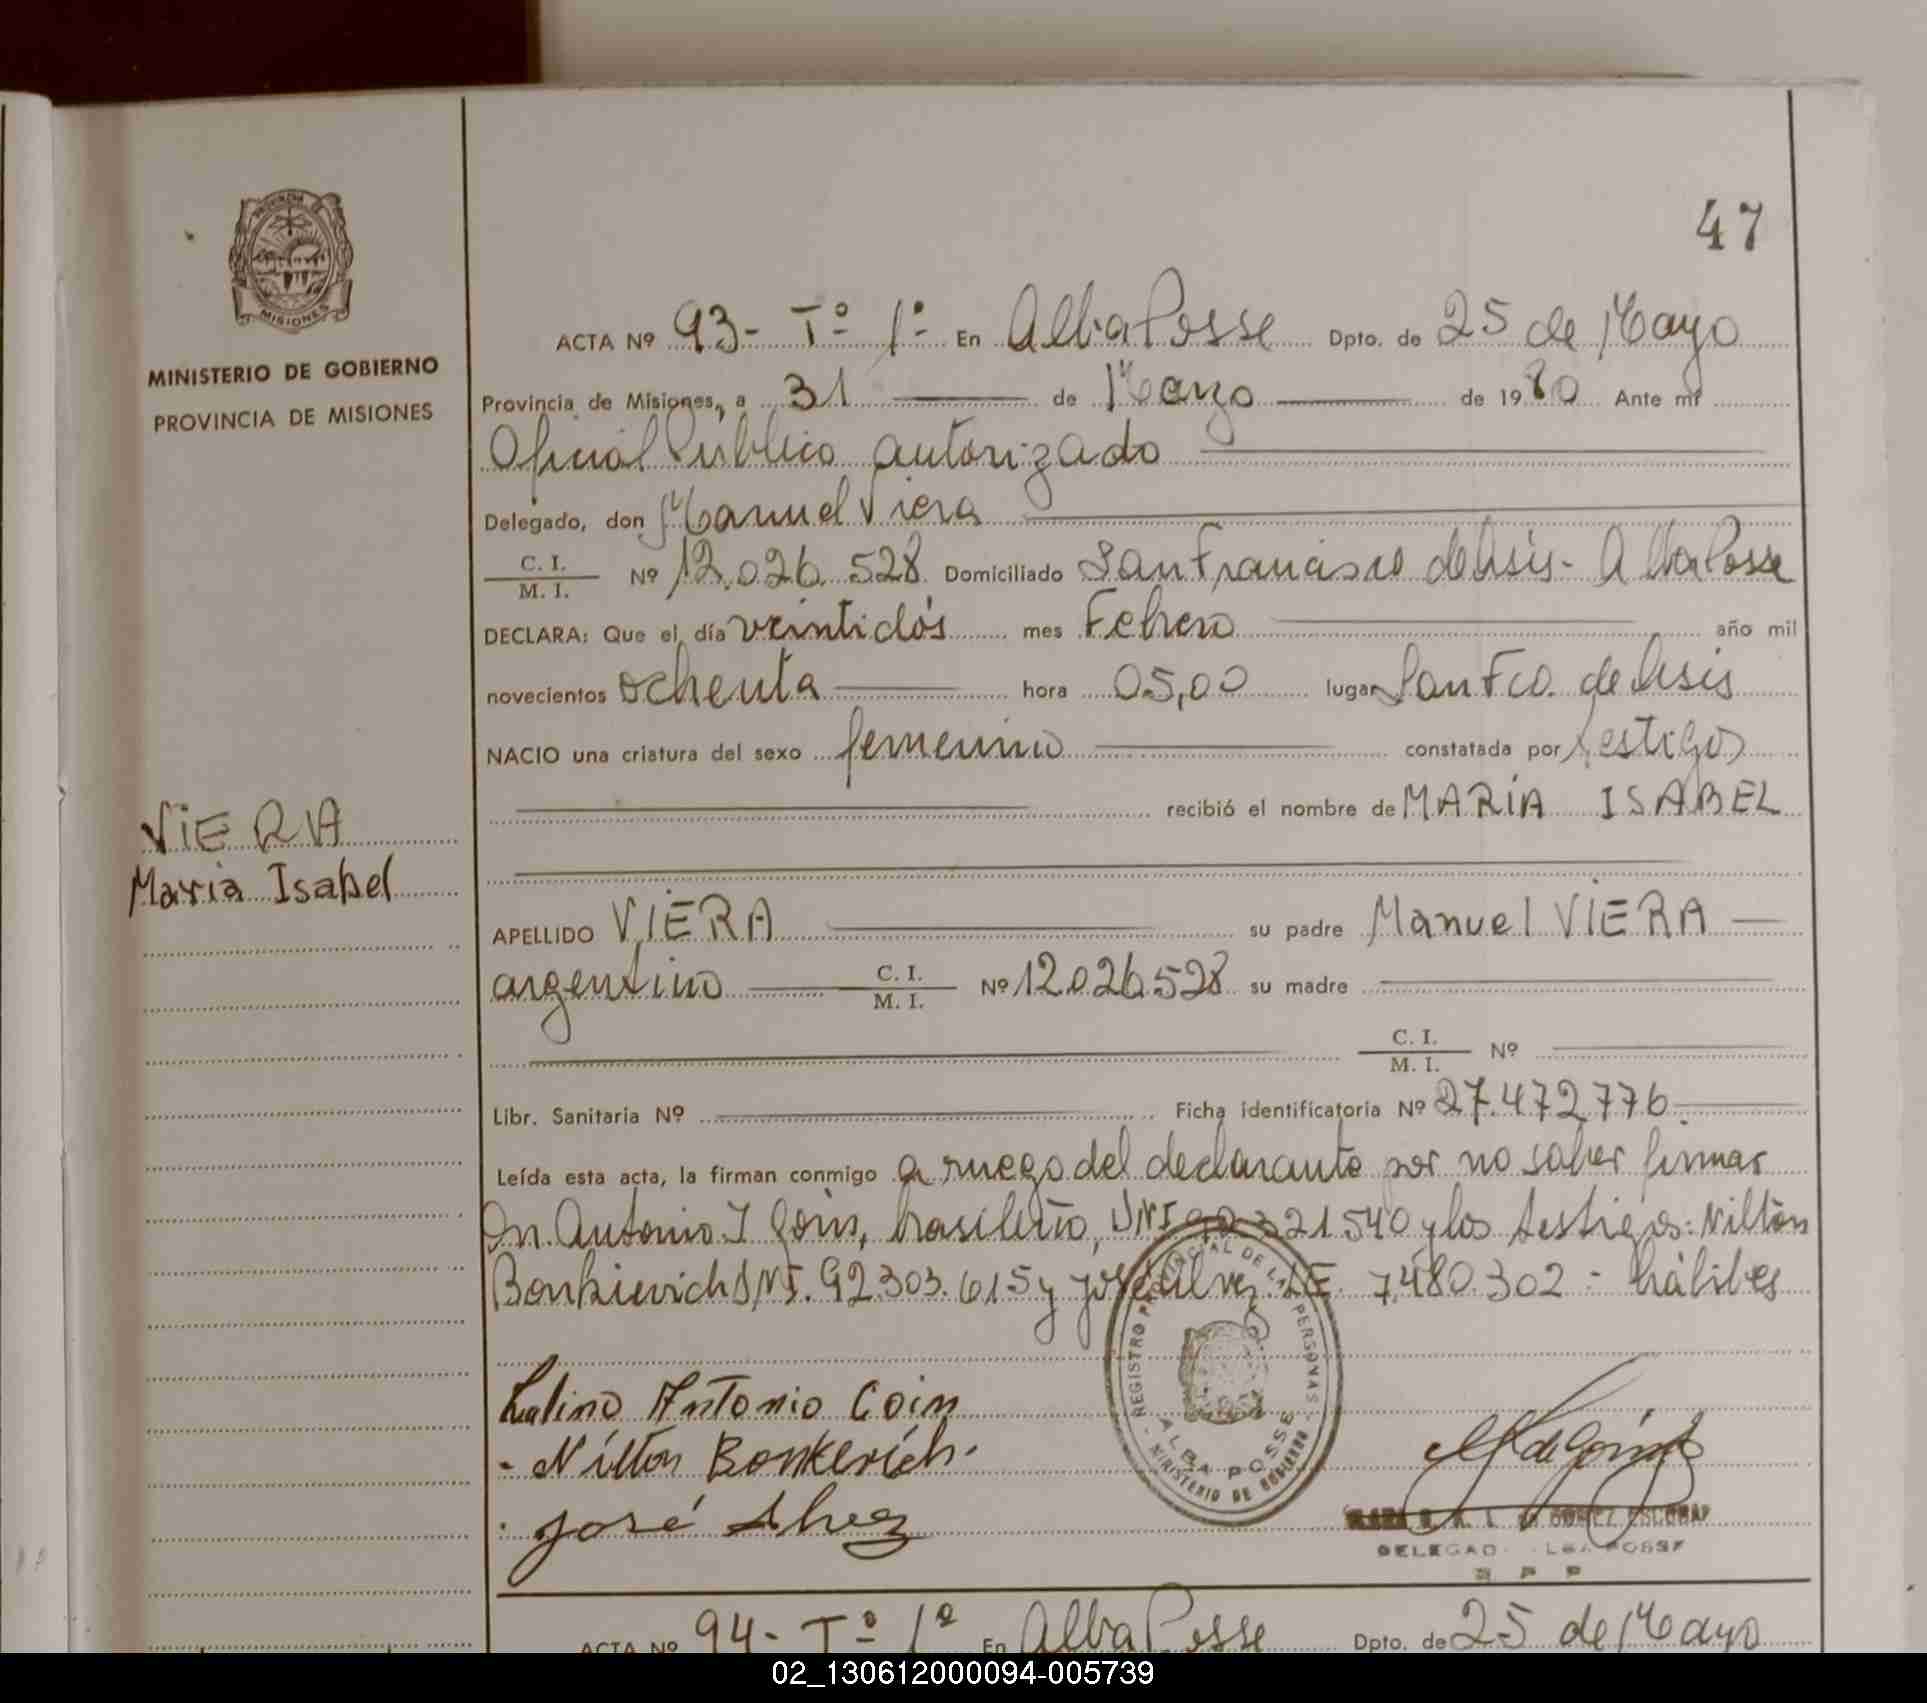 47
PROVINCIA DE
MISIONES
MINISTERIO DE GOBIERNO
PROVINCIA DE MISIONES
ACTA Nº 93- Tº 1º En Alba Posse Dpto. de 25 de Mayo
Provincia de Misiones, a 31 de Marzo de 1980 Ante mí
Oficial Público autorizado
Delegado, don Manuel Viera
C. I.
M. I. Nº 12.026.528 Domiciliado San Francisco de Asis - Alba Posse
DECLARA: Que el día veintidós mes Febrero año mil
novecientos ochenta hora 05,00 lugar San Fco. de Asis
NACIO una criatura del sexo femenino constatada por testigos
recibió el nombre de MARÍA ISABEL
VIERA
Maria Isabel
APELLIDO VIERA su padre Manuel VIERA
argentino C. I.
M. I. Nº 12.026.528 su madre
C. I.
M. I. Nº
Libr. Sanitaria Nº Ficha identificatoria Nº 27.472.776
Leída esta acta, la firman conmigo a ruego del declarante por no saber firmar
Dn. Antonio Goin, brasileño, DNI 92.321540 y los testigos: Nilton
Bonkievich DNI. 92.303.615 y José Alvez LE. 7.480.302 - hábiles
Antonio Goin
- Nilton Bonkevich.
José Alvez
REGISTRO PROVINCIAL DE LAS PERSONAS
ALBA POSSE
MINISTERIO DE GOBIERNO
GOMEZ ESCOBAR
DELEGAD ALBA POSSE
R P P
ACTA Nº 94- Tº 1º En Alba Posse Dpto. de 25 de Mayo
02_130612000094-005739